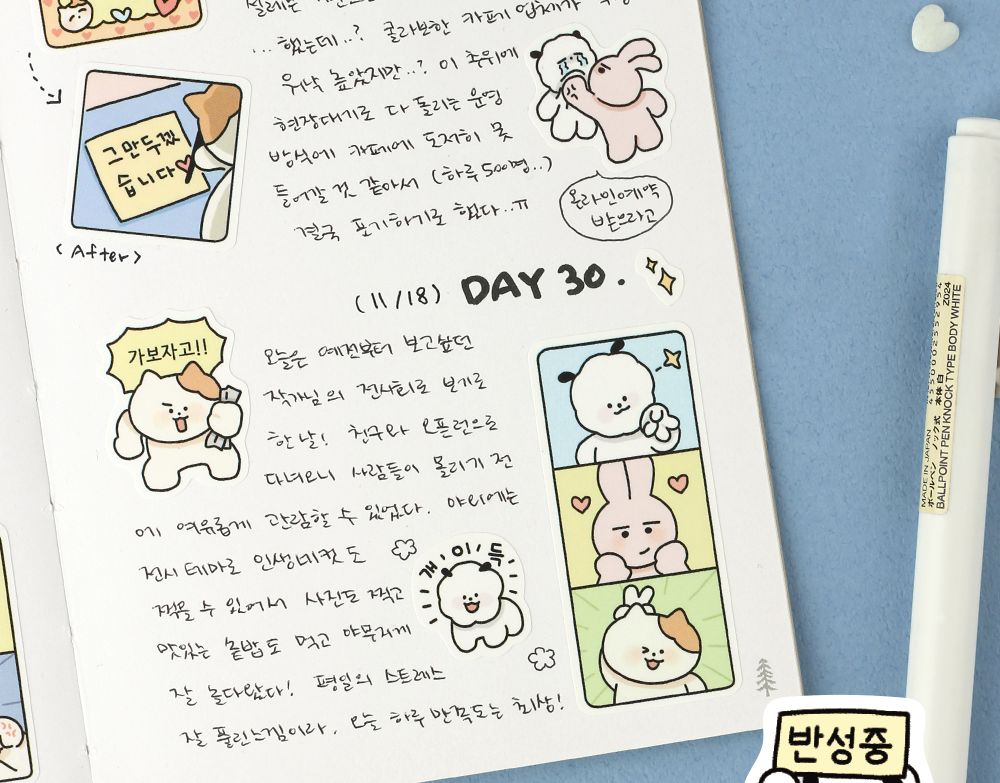 설레는
... 했는데..? 콜라보한 카페 업체가
워낙 높았지만..? 이 추위에
현장대기로 다 돌리는 운영
방식에 카페에 도저히 못
들어갈 것 같아서 (하루 500명..)
결국 포기하기로 했다..ㅠ
온라인예약
받으라고
그만두겠
습니다
< After >
(11/18) DAY 30.
가보자고!!
오늘은 예전부터 보고싶던
작가님의 전시회로 보기로
한 날! 친구와 오픈런으로
다녀오니 사람들이 몰리기 전
에 여유롭게 관람할 수 있었다. 야외에는
전시 테마로 인생네컷도
찍을 수 있어서 사진도 찍고
맛있는 솥밥도 먹고 야무지게
잘 놀다왔다! 평일의 스트레스
잘 풀린느낌이라, 오늘 하루 만족도는 최상!
개이득
반성중
2024
4550002552954
MADE IN JAPAN
ボールペン ノック式 本体 白
BALLPOINT PEN KNOCK TYPE BODY WHITE